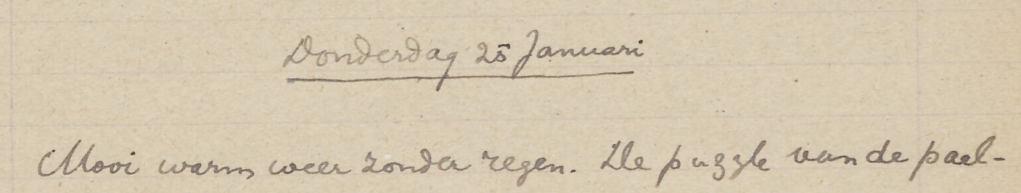 Donderdag 25 Januari
Mooi warm weer zonder regen. De puzzle van de pael-